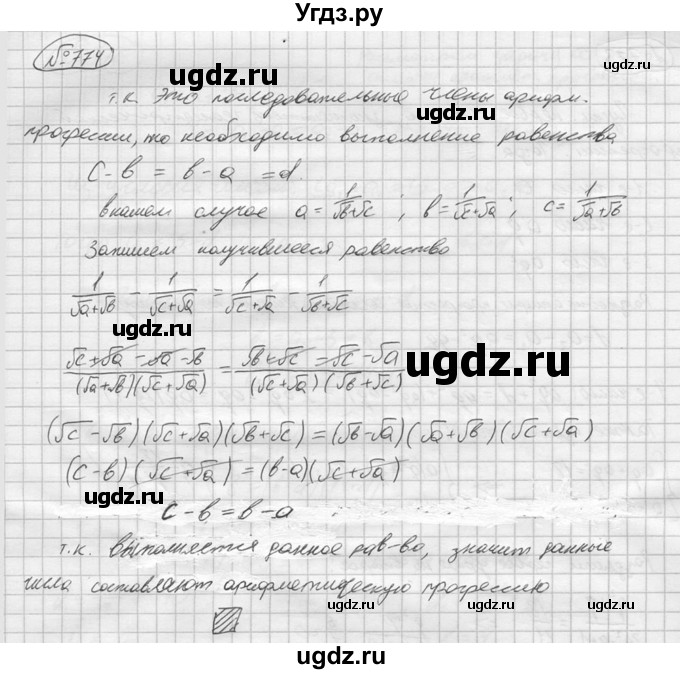 Угдз.ру
№774
т.к. это последовательные члены арифм.
прогрессии, то необходимо выполнение равенства
c - b = b - a = d.
в нашем случае a = 1/(√b+√c) ; b = 1/(√c+√a) ; c = 1/(√a+√b)
Запишем получившееся равенство
1/(√a+√b) - 1/(√c+√a) = 1/(√c+√a) - 1/(√b+√c)
(√c+√a-√a-√b)/((√a+√b)(√c+√a)) = (√b+√c-√c-√a)/((√c+√a)(√b+√c))
(√c-√b)(√c+√a)(√b+√c) = (√b-√a)(√a+√b)(√c+√a)
(c-b)(√c+√a) = (b-a)(√c+√a)
c - b = b - a
т.к. выполняется данное рав-во, значит данные
числа составляют арифметическую прогрессию
ugdz.ru
ugdz.ru
ugdz.ru
ugdz.ru
ugdz.ru
ugdz.ru
ugdz.ru
ugdz.ru
ugdz.ru
ugdz.ru
ugdz.ru